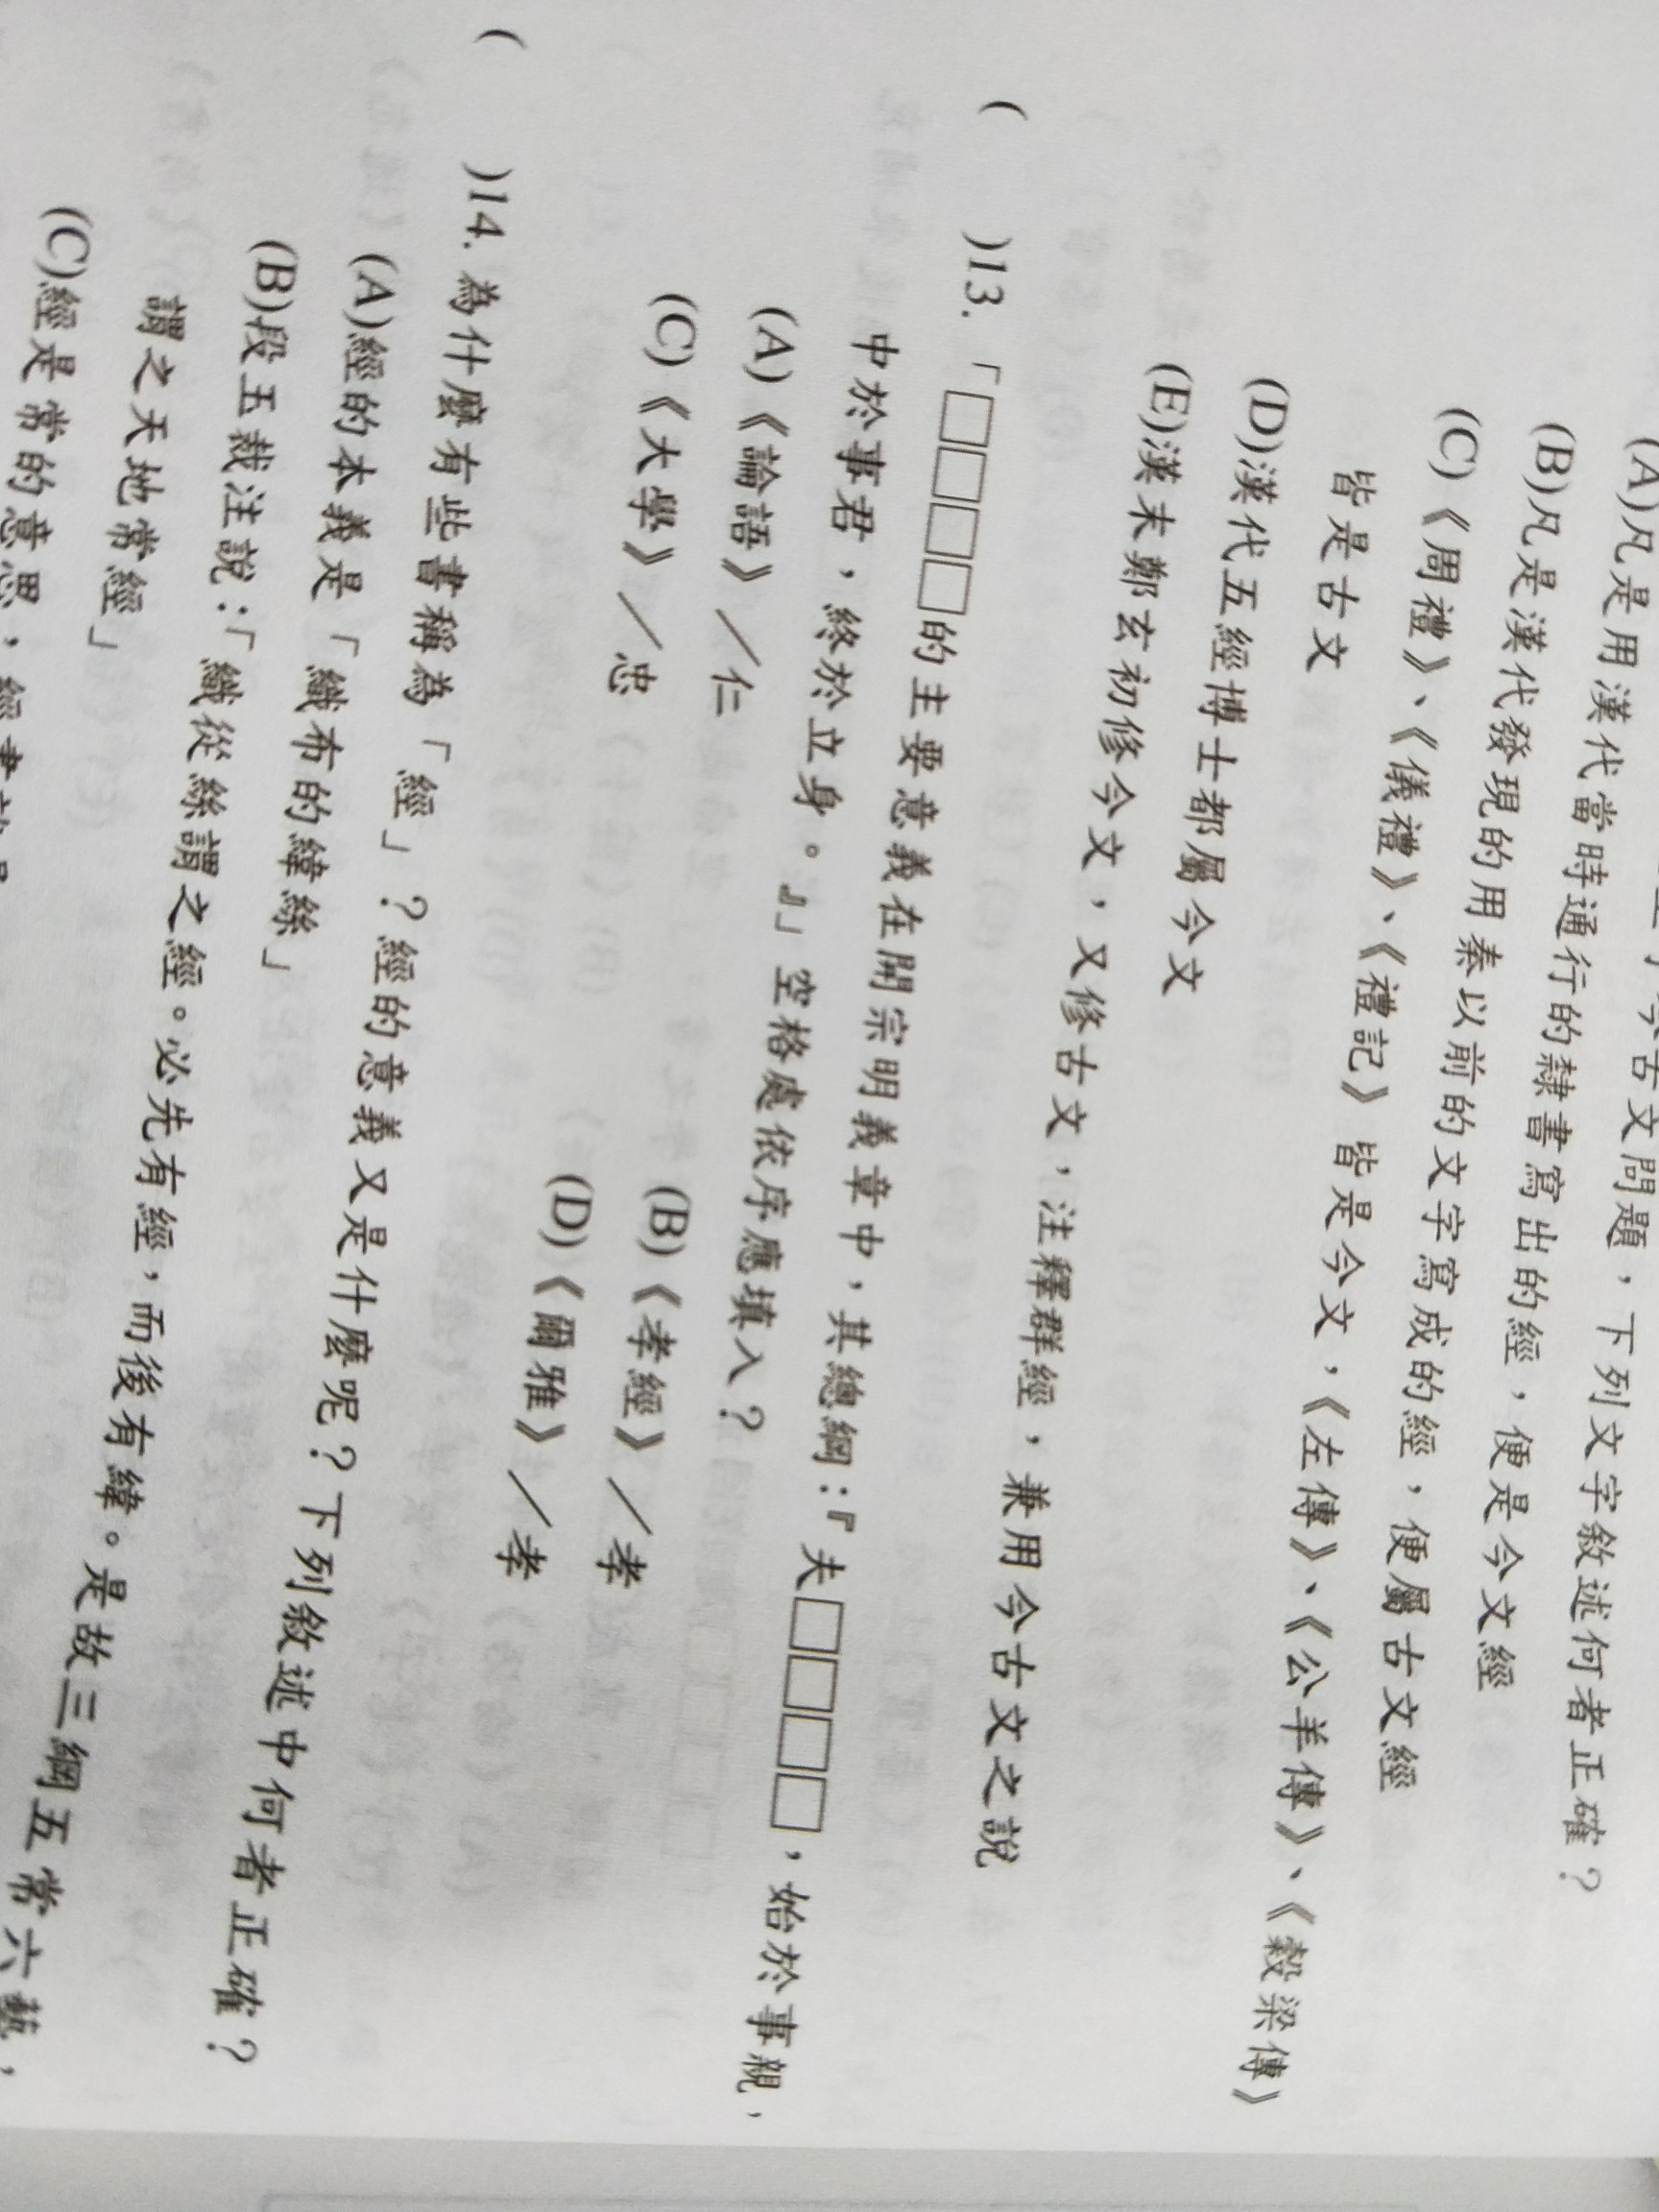 今古文問題，下列文字敘述何者正確？
(A)凡是用漢代當時通行的隸書寫出的經，便是今文經
(B)凡是漢代發現的用秦以前的文字寫成的經，便屬古文經
(C)《周禮》、《儀禮》、《禮記》皆是今文，《左傳》、《公羊傳》、《穀梁傳》
皆是古文
(D)漢代五經博士都屬今文
(E)漢末鄭玄初修今文，又修古文，注釋群經，兼用今古文之說
( )13.「□□□□的主要意義在開宗明義章中，其總綱：『夫□□□□，始於事親，
中於事君，終於立身。』」空格處依序應填入？
(A)《論語》／仁 (B)《孝經》／孝
(C)《大學》／忠 (D)《爾雅》／孝
( )14. 為什麼有些書稱為「經」？經的意義又是什麼呢？下列敘述中何者正確？
(A)經的本義是「織布的緯絲」
(B)段玉裁注說：「織從絲謂之經。必先有經，而後有緯。是故三綱五常六藝，
謂之天地常經」
(C)經是常的意思，經書